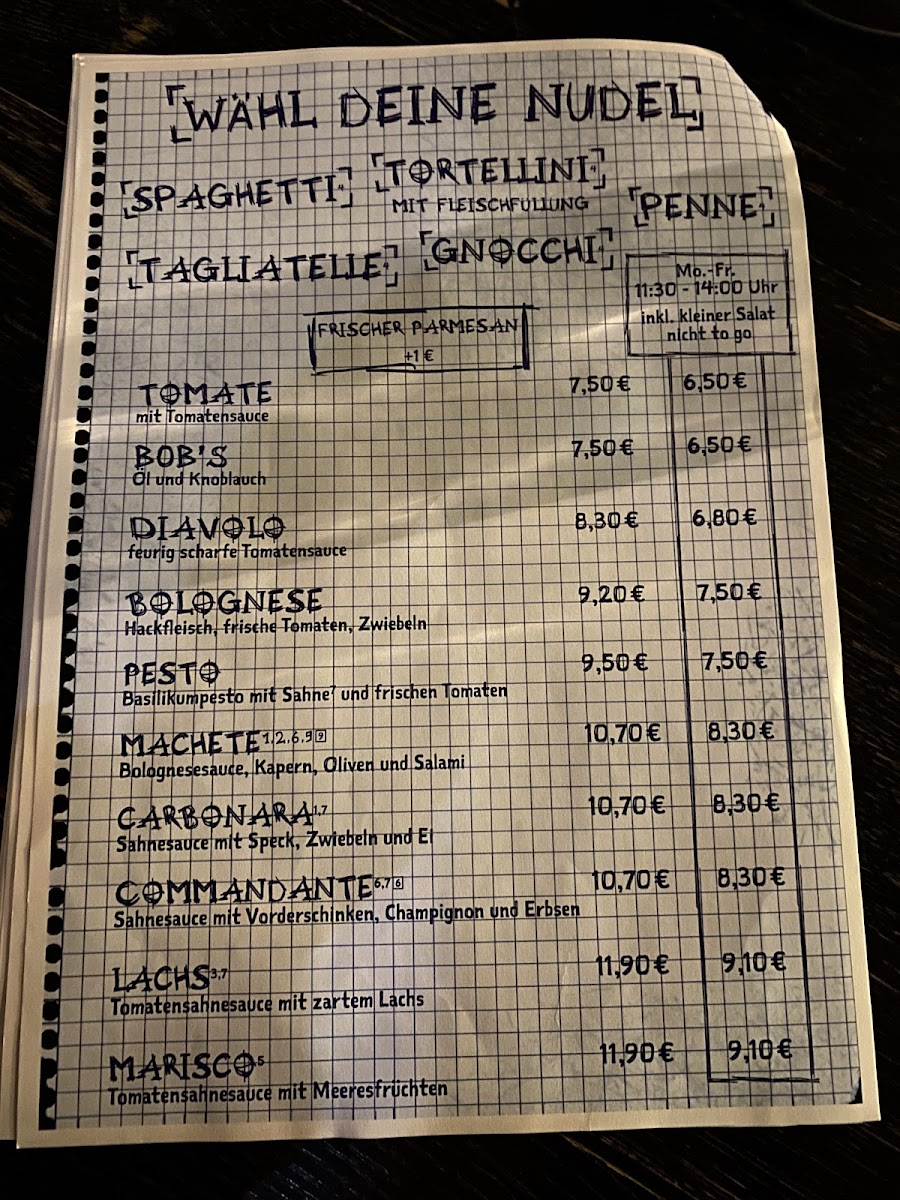 WÄHL DEINE NUDEL
SPAGHETTI
TORTELLINI
MIT FLEISCHFÜLLUNG
PENNE
TAGLIATELLE
GNOCCHI
Mo.-Fr.
11:30 - 14:00 Uhr
inkl. kleiner Salat
nicht to go
FRISCHER PARMESAN
+1 €
TOMATE 7,50 € 6,50 €
mit Tomatensauce
BOB'S 7,50 € 6,50 €
Öl und Knoblauch
DIAVOLO 8,30 € 6,80 €
feurig scharfe Tomatensauce
BOLOGNESE 9,20 € 7,50 €
Hackfleisch, frische Tomaten, Zwiebeln
PESTO 9,50 € 7,50 €
Basilikumpesto mit Sahne⁷ und frischen Tomaten
MACHETE 1,2,6,9 9 10,70 € 8,30 €
Bolognesesauce, Kapern, Oliven und Salami
CARBONARA 1,7 10,70 € 8,30 €
Sahnesauce mit Speck, Zwiebeln und Ei
COMMANDANTE 6,7 6 10,70 € 8,30 €
Sahnesauce mit Vorderschinken, Champignon und Erbsen
LACHS 3,7 11,90 € 9,10 €
Tomatensahnesauce mit zartem Lachs
MARISCO 5 11,90 € 9,10 €
Tomatensahnesauce mit Meeresfrüchten